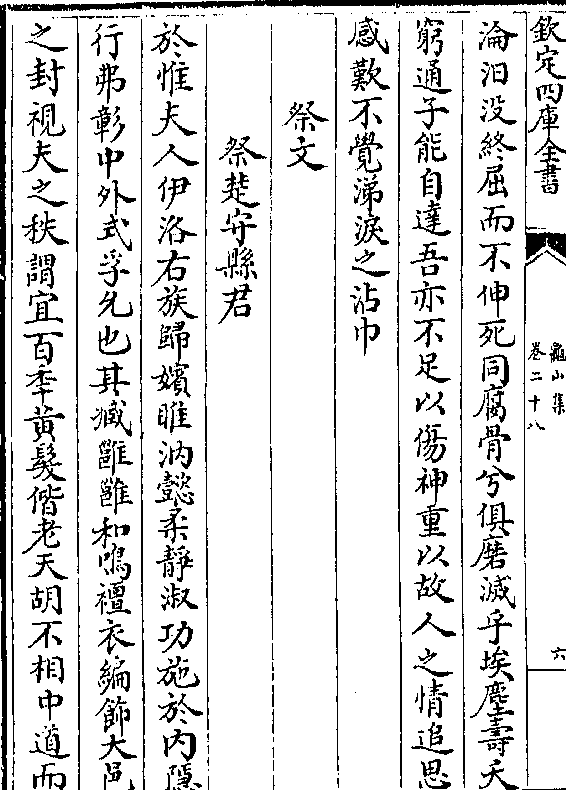 欽定四庫全書
龜山集
卷二十八
六
淪汨没終屈而不伸死同腐骨兮俱磨滅乎埃塵壽夭
窮通子能自達吾亦不足以傷神重以故人之情追思
感歎不覺涕淚之沾巾
祭文
祭楚守縣君
於惟夫人伊洛右族歸嬪睢汭懿柔靜淑功施於内隱
行弗彰中外式孚允也其臧雝雝和鳴襢衣編飾大邑
之封視夫之秩謂宜百年黄髮偕老天胡不相中道而